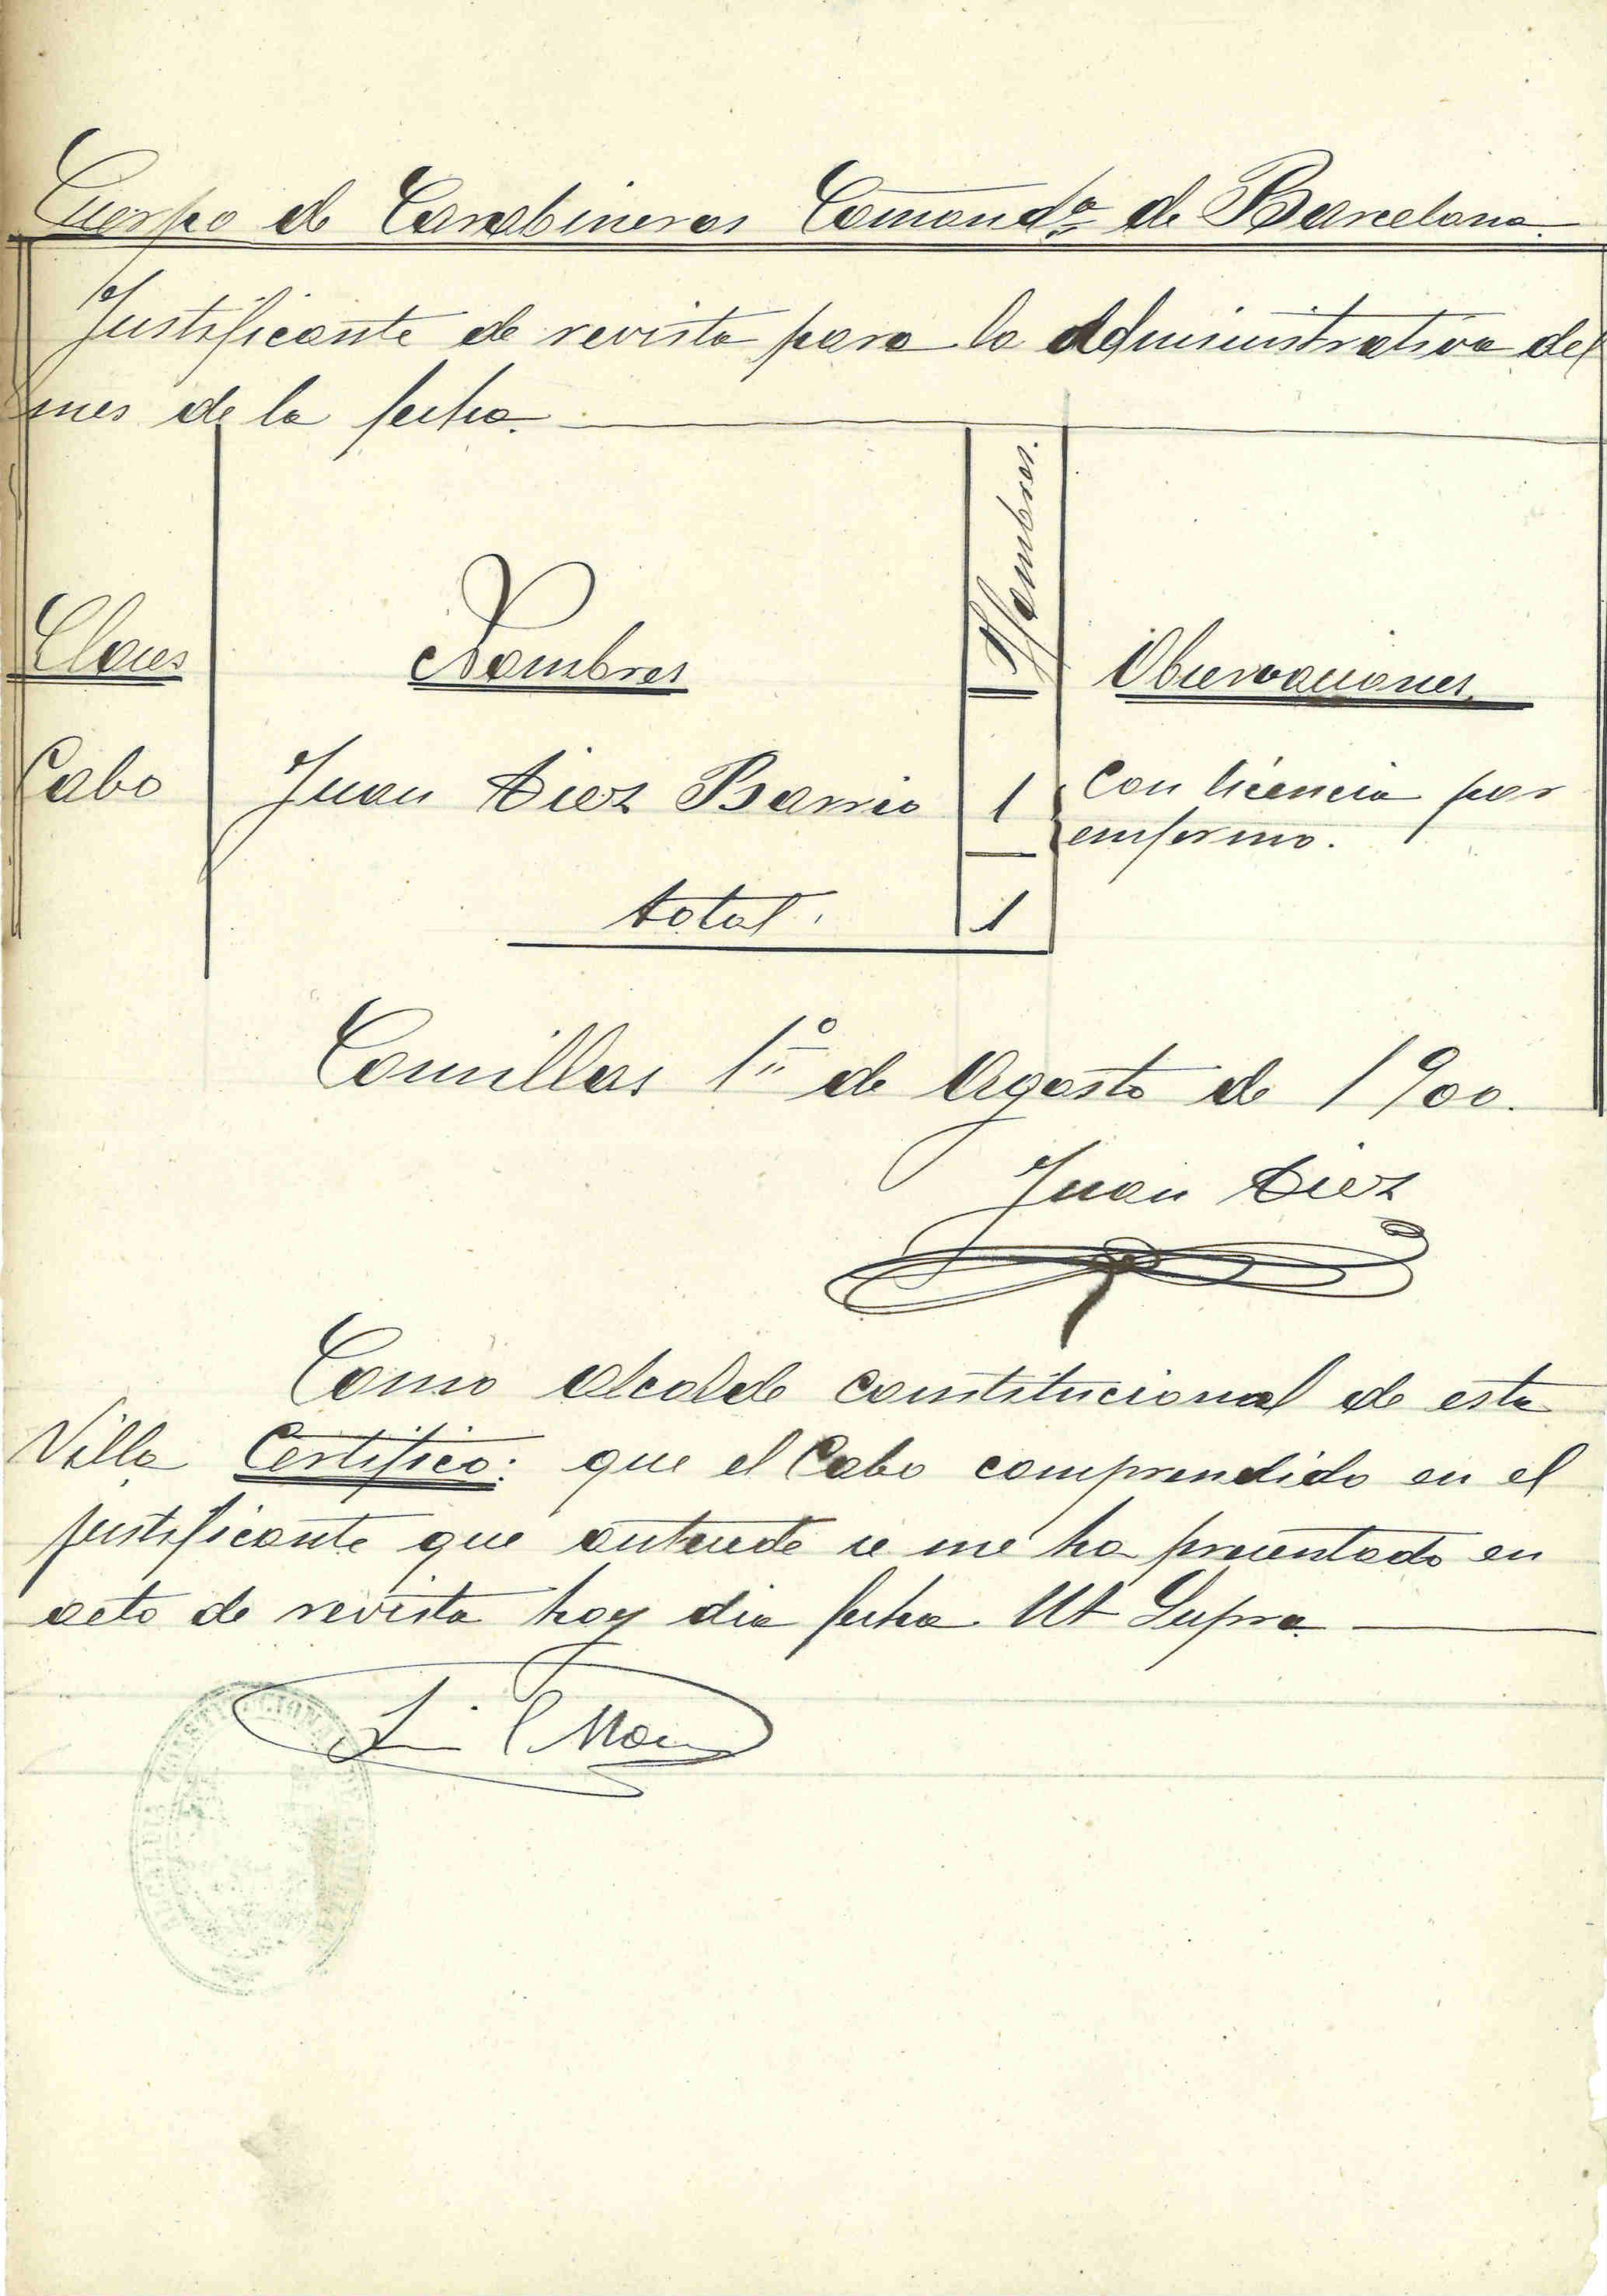 Cuerpo de Carabineros Comandª de Barcelona.
Justificante de revista para la administrativa del
mes de la fecha.
Clases
Nombres
Hombres.
Observaciones
Cabo Juan Diez Barrio 1 Con licencia por
enfermo.
total. 1
Comillas 1º de Agosto de 1900.
Juan Diez
Como alcalde constitucional de esta
Villa Certifico: que el Cabo comprendido en el
justificante que antecede se me ha presentado en
acto de revista hoy dia fecha Ut Supra